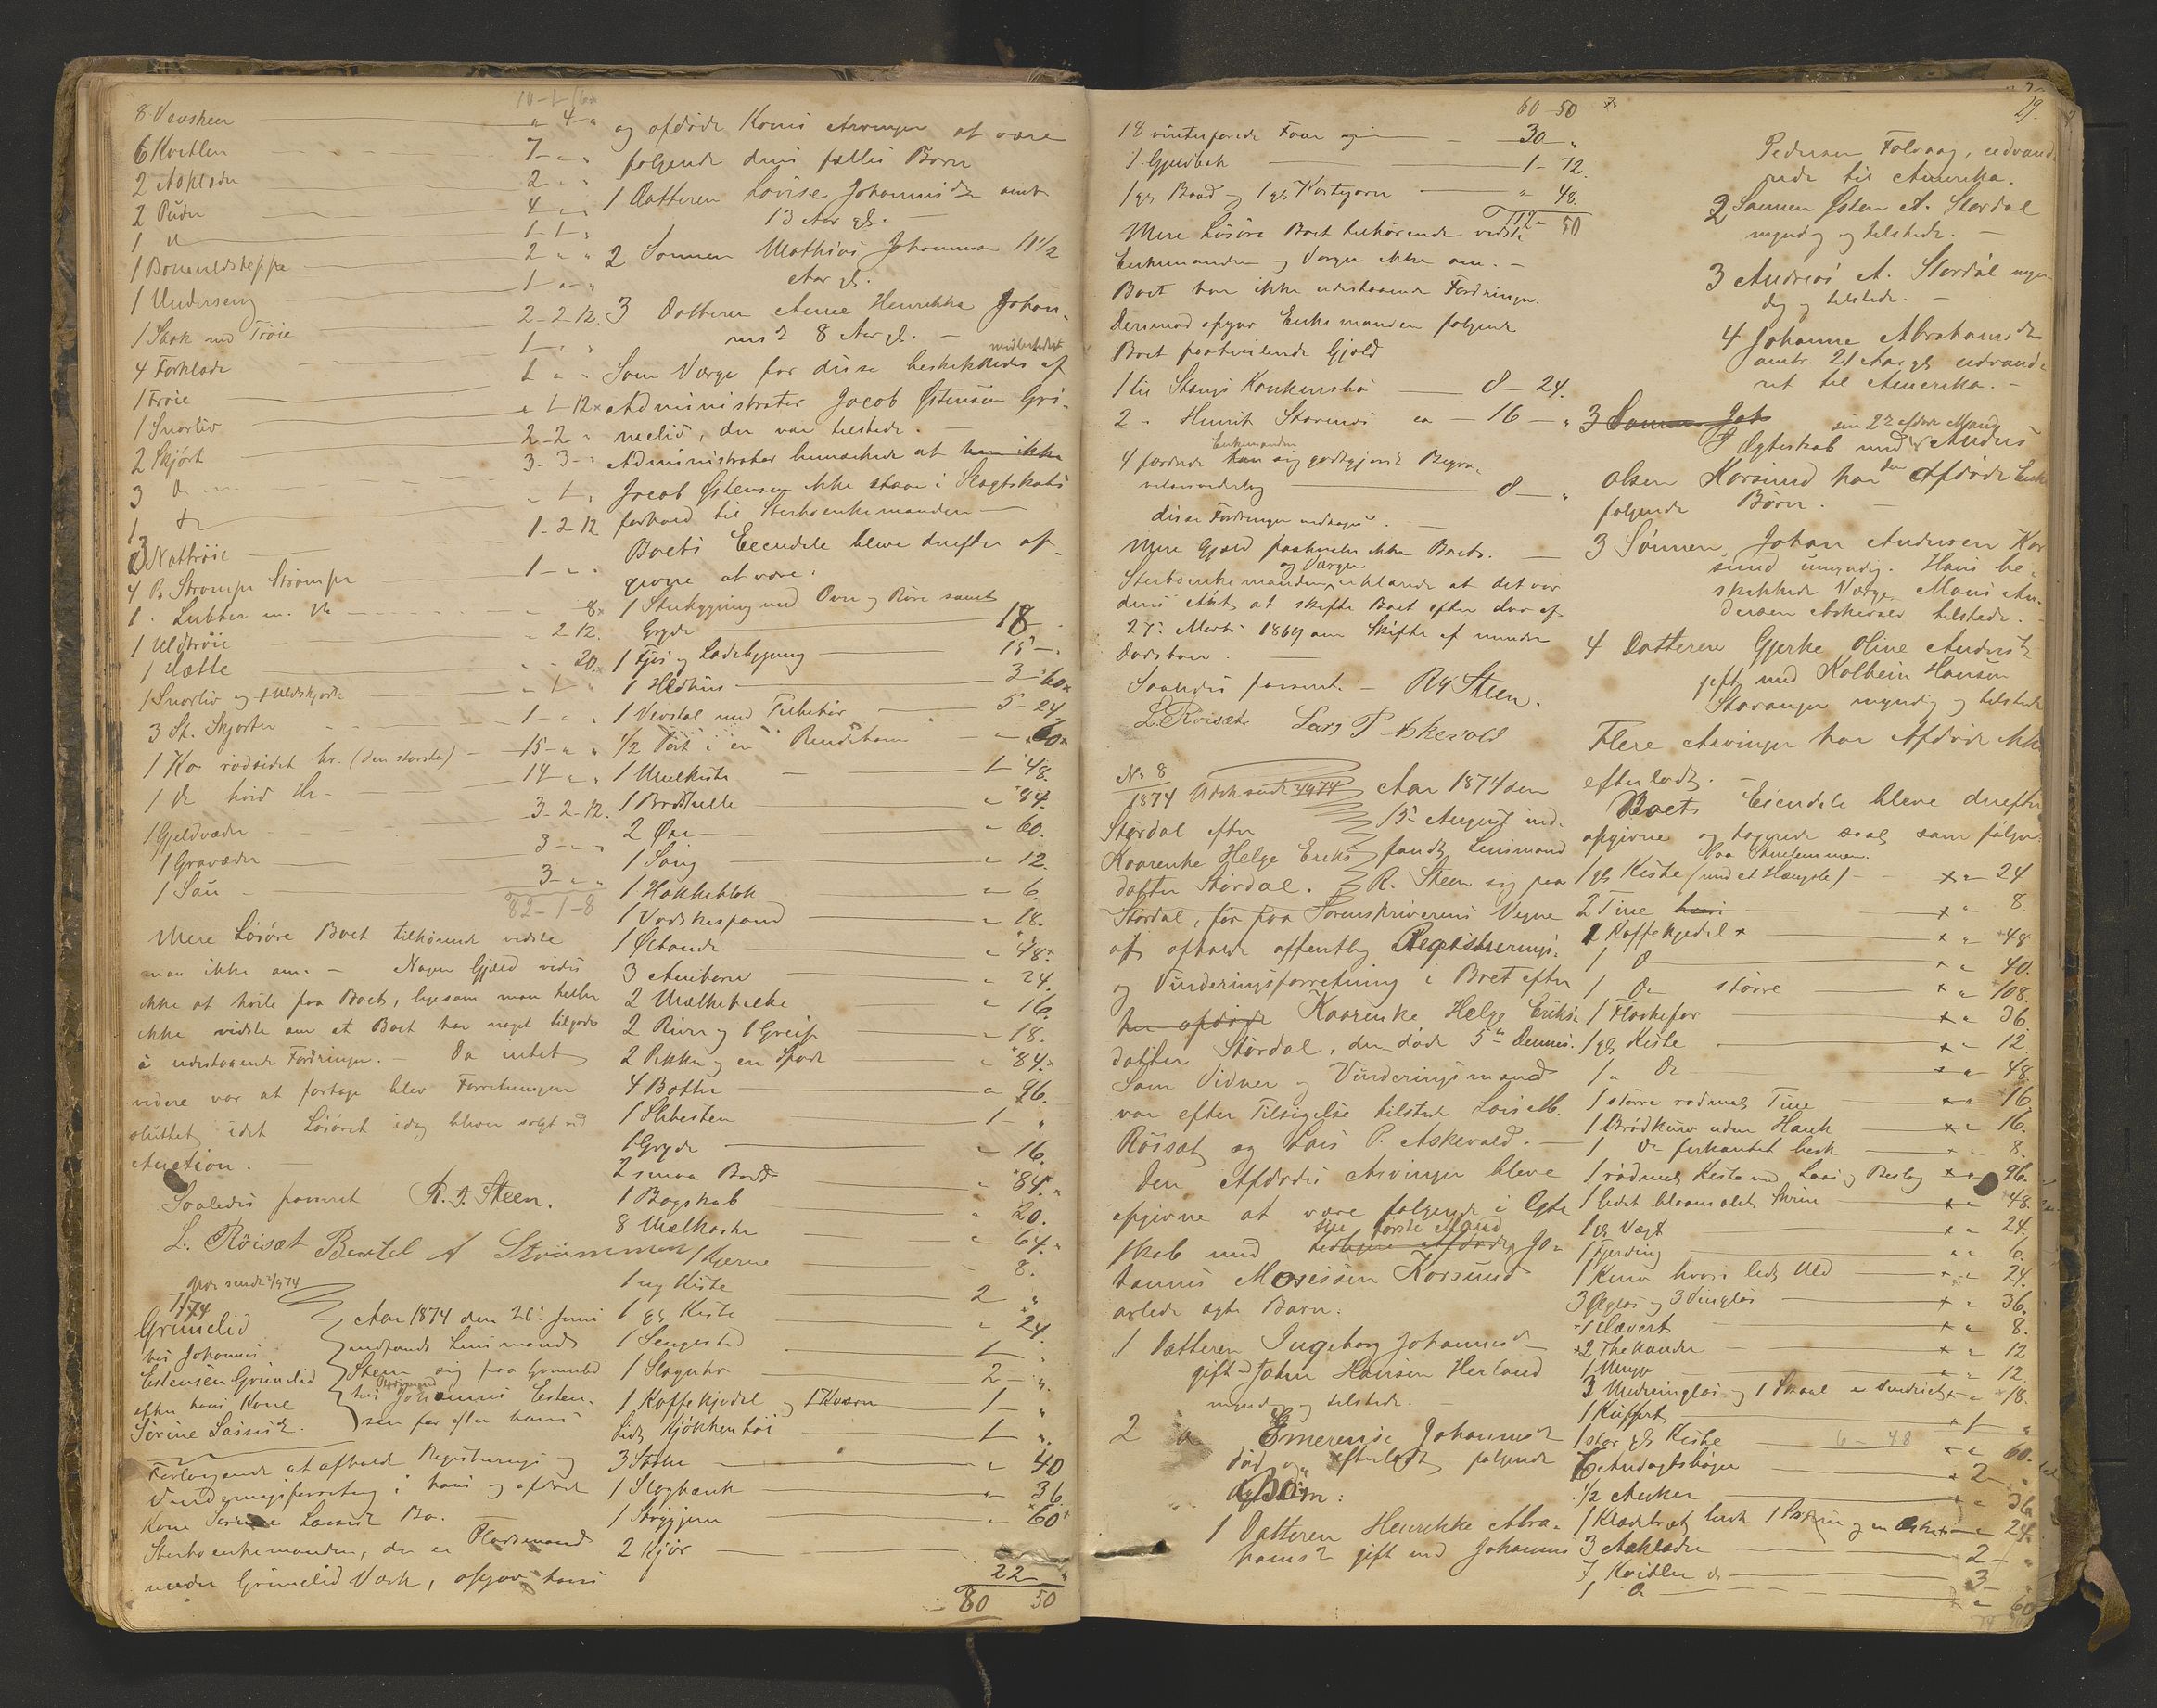 10-1-16
8 Vevskeer " 4 "
6 Kvitlen 7 - " "
2 Aaklæder 2 " "
2 Puder 4 " "
1 do 1-1-"
1 Bomuldsteppe 2 " "
1 Underseng 1 - " "
1 Særk med Trøie 2-2-12
4 Forklæde 1 - " "
1 Trøie 1 " "
1 Snorliv " 1-12
2 Skjørt 2-2 "
3 do 3-3-"
1 do " 1 "
3 Nattrøie 1-2 12
4 P. Strømper 1 - " "
1 " Lubber " 8
1 Uldtrøie " 2 12.
1 Hætte " - 20.
1 Snorliv og 1 Uldskjorte " 1 "
3 St. Skjorter 1 - " "
1 Ko rødsidet hr. (den største) 15 - " "
1 do hvid 14 - " "
1 Gjeldvæder 3-2-12.
1 Gravæder 3 - " "
1 Sau 3 - " "
82-1-8
Mere Løsøre Boet tilhørende vidste
man ikke om. - Nogen Gjæld vides
ikke at hvile paa Boet, ligesom man heller
ikke vidste om at Boet har noget tilgode
i udestaaende Fordringer. - Da intet
videre var at foretage blev Forretningen
sluttet, idet Løsøret idag bliver solgt ved
Auction. -
Saaledes passeret R. I. Steen.
L. Röisæt Bertel A Strömmen
7/1874
Grimelid
hos Johannes
Estensen Grimelid
efter hans Kone
Sørine Larsdr.
Aar 1874 den 26de Juni
indfandt Lensmand
Steen sig paa Grimelid
hos Johannes Esten-
sen for efter hans
Forlangende at afholde Registrerings og
Vurderingsforretning i hans og afdøde
Kone Sørine Larsdr. Bo. -
Sterboenkemanden, der er Pladsemand
under Grimelid Vaik, opgav hans
og afdøde Kones Arvinger at være
følgende deres fælles Børn
1 Datteren Lovise Johannesdr omtr
13 Aar gl. -
2 Sønnen Mathias Johannesen 11 1/2
Aar gl.
3 Datteren Anne Henrikka Johan-
nesdr 8 Aar gl. -
Som Værge for disse beskikkedes af
Administrator Jacob Østensen Gri-
melid, der var tilstede. -
Administrator bemærkede at han ikke
Jacob Østensen ikke staar i Slægtskabs
forhold til Sterboenkemanden -
Boets Eiendele bleve derefter op-
givne at være:
1 Stuebygning med Ovn og Rør samt
Gryde 18
1 Fjøs og Ladebygning 15 - "
1 Ildhus 3 - 60
1 Vevstol med Tilbehør 5 - 24
1/2 Part i en " 60
1 Meelkiste 1 - 48.
1 Brødhelle " 84.
2 Øxe " 60.
1 Saug " 12.
1 Hakkeblok " 6.
1 Vadskespand " 18.
1 Øltønde " 48
3 " 24.
2 Mælkebøtte " 16.
2 River og 1 Greip " 18.
2 Pikke og en Spade " 84.
4 Bøtter " 96.
1 Slibesten 1 - "
1 Gryde " 16.
2 smaa Borde " 84.
1 Bogskab " 20.
8 Mælkekar " 64.
1 Kjerne 8.
1 ny Kiste 2 "
1 gl. Kiste " 24.
1 Sengested 1 - "
1 Slaguhr 2 - "
1 Kaffekjedel og 1 Kværn 1 - "
Lidt Kjøkkentøi 1 - "
3 Stole " 40
1 Slagbænk " 36
1 Strygjern " 60
2 Kjør 22 - "
80 50
80-50
18 vinterforede Faar 30 "
1 Gjeldbuk 1-72.
1 gl. Baad og 1 gl. " 48.
112- 50
Mere Løsøre Boet tilhørende vidste
Enkemanden og Værgen ikke om. -
Boet har ikke udestaaende Fordringer.
Derimod opgav Enkemanden følgende
Boet paahvilende Gjæld
1 til Stangs Konkursbo 8 - 24.
2 " 16 - "
Enkemanden
4 fordrede sig godtgjort Begra-
velsesudlæg 8 - "
disse Fordringer vedtages. -
Mere Gjæld paahviler ikke Boet. -
og Værgen
Sterboenkemanden erklærede at det var
deres Agt at skifte Boet efter Lov af
27de Marts 1869 om Skifte af mindre
Dødsboer. -
Saaledes passeret. - R I Steen.
L. Röisæt Lars P Askevold
No 8
1874
Stordal efter
Kaarenke Helge Eriks
datter Stordal.
Aar 1874 den
15de August ind-
fandt Lensmand
R. Steen sig paa
Stordal, for paa Sorenskriverens Vegne
at afholde offentlig Registrerings-
og Vurderingsforretning i Boet efter
Kaarenke Helge Eriks-
datter Stordal, der døde 5te Dennes.
Som Vidner og Vurderingsmænd
var efter Tilsigelse tilstede Lars M.
Röisæt og Lars P. Askevold. -
Den Afdødes Arvinger bleve
opgivne at være følgende i Ægte
sin første Mand
skab med Jo-
hannes Mosessøn Korssund
avlede ægte Børn:
1 Datteren Ingeborg Johannesdr
gift med John Hansen Herland
myndig og tilstede. -
2 do Emerense Johannesdr
død og efterladt følgende
Børn:
1 Datteren Henrikke Abra-
hamsdr gift med Johannes
29.
Pedersen Folvaag, udvand-
rede til Amerika.
2 Sønnen Østen A. Stordal
myndig og tilstede. -
3 Andreas A. Stordal myn-
dig og tilstede. -
4 Johanne Abrahamsdr
omtr. 21 Aar gl. udvand-
ret til Amerika. -
3 Sønnen Joh
sin 2den afdøde Mand
I Ægteskab med Anders
Olsen Korssund har den Afdøde Enke
følgende Børn. -
3 Sønnen Johan Andersen Kor
sund umyndig. Hans be-
skikkede Værge Mons An-
dersen Askevold tilstede. -
4 Datteren Gjerke Oline Andersdr
gift med Kolbein Hansen
Stavanger myndig og tilstede
Flere Arvinger har Afdøde ikke
efterladt. -
Boets Eiendele bleve derefter
opgivne og taxerede som følger
Paa Stuelemmen.
1 gl. Kiste (med et Hængsle) " 24
2 Tine " 8.
1 Kaffekjedel " 48
1 do " 40.
1 do større " 108.
1 Flaskefor " 36
1 gl. Kiste " 12
1 " do " 48
1 større rødmalt Tine " 16
1 Brødkurv uden Hank " 16.
1 do firkantet " 8.
1 rødmalt Kiste med Laas og Beslag " 96.
1 lidet blaamalet Skrin " 48.
1 gl. Vægt " 24.
1 Fjerding " 6.
1 Kurv hvori lidt Uld " 24.
3 Ølglas og 3 Vinglas " 36
1 Hævert " 8.
2 Thekander " 12
1 Mugge " 12.
3 Medicinglas og 1 Skaal " 18.
1 Kuffert 1 "
1 stor gl. Kiste 6-48 " 60.
6 Andagtsbøger 2 - "
1/2 Anker " 36
1 Klædebræt " 24.
3 Aaklæder 2 - "
7 Kvitler 3 - "
1 do " 60